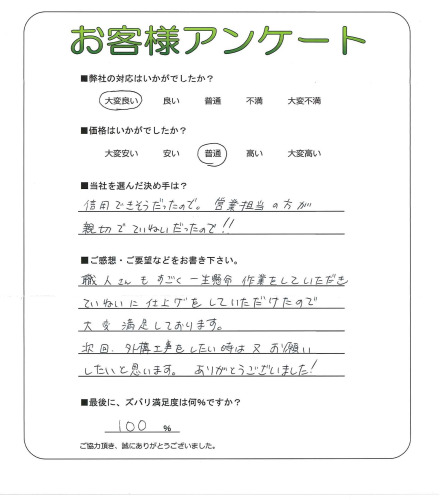 お客様アンケート
■弊社の対応はいかがでしたか？
大変良い 良い 普通 不満 大変不満
■価格はいかがでしたか？
大変安い 安い 普通 高い 大変高い
■当社を選んだ決め手は？
信用できそうだったので。営業担当の方が
親切でていねいだったので!!
■ご感想・ご要望などをお書き下さい。
職人さんもすごく一生懸命作業をしていただき
ていねいに仕上げをしていただけたので
大変満足しております。
次回、外構工事をしたい時は又お願い
したいと思います。ありがとうございました!
■最後に、ズバリ満足度は何%ですか？
100 %
ご協力頂き、誠にありがとうございました。